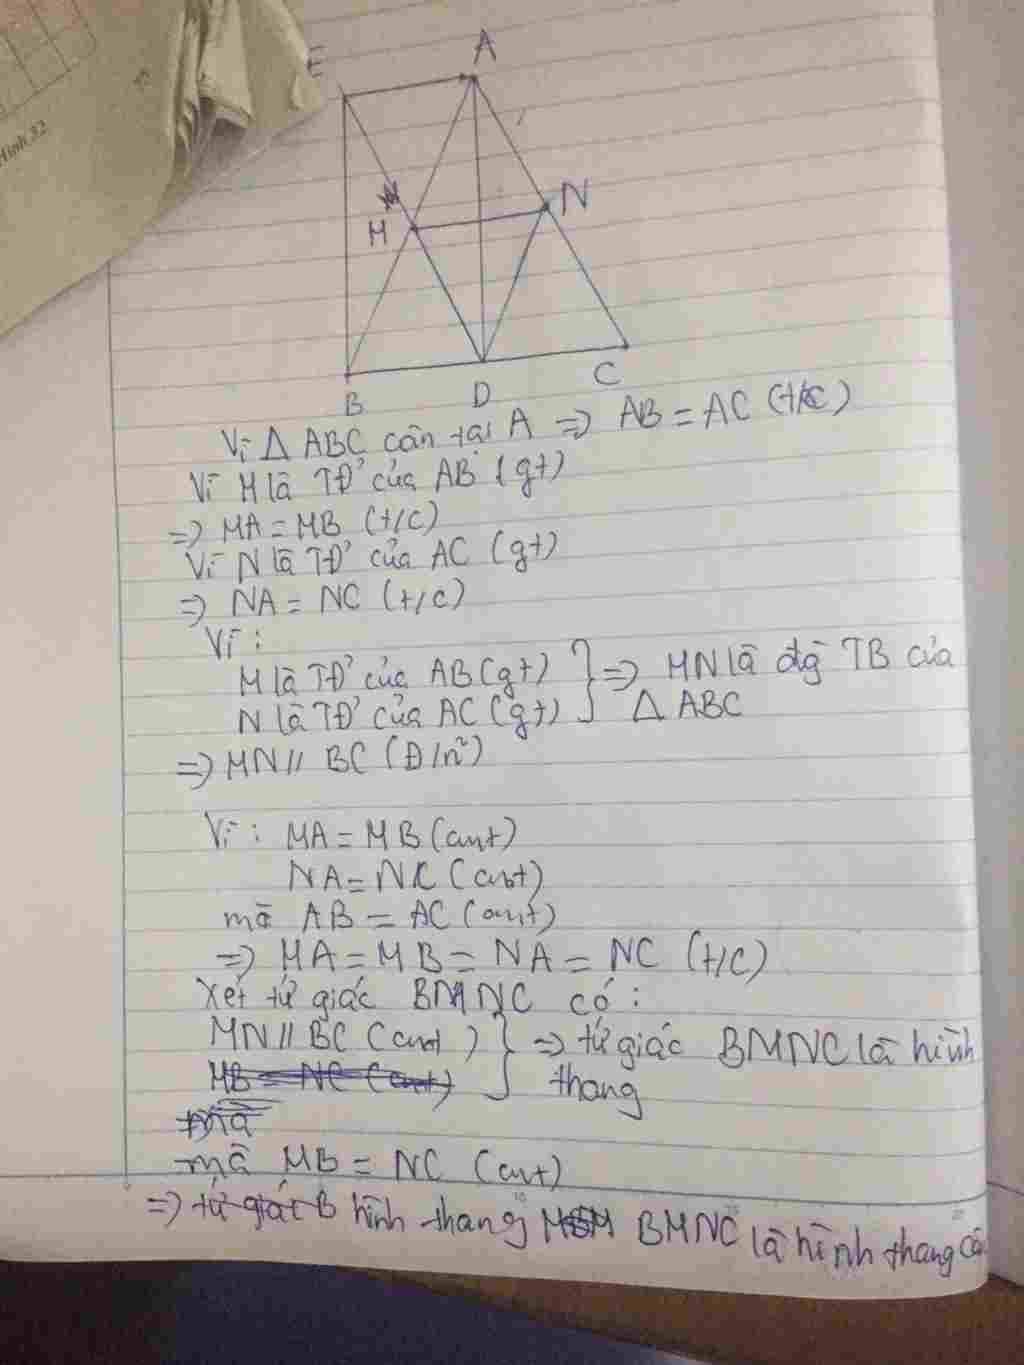 Hình 32
E A
M N
B D C
Vì Δ ABC cân tại A => AB = AC (t/c)
Vì M là TĐ' của AB (gt)
=> MA = MB (t/c)
Vì N là TĐ' của AC (gt)
=> NA = NC (t/c)
Vì :
M là TĐ' của AB (gt) } => MN là đg TB của
N là TĐ' của AC (gt) } Δ ABC
=> MN // BC (Đ/n²)
Vì : MA = MB (cmt)
NA = NC (cmt)
mà AB = AC (cmt)
=> MA = MB = NA = NC (t/c)
Xét tứ giác BMNC có :
MN // BC (cmt) } => tứ giác BMNC là hình
MB = NC (cmt) } thang
mà
mà MB = NC (cmt)
=> tứ giác B hình thang BMNC là hình thang